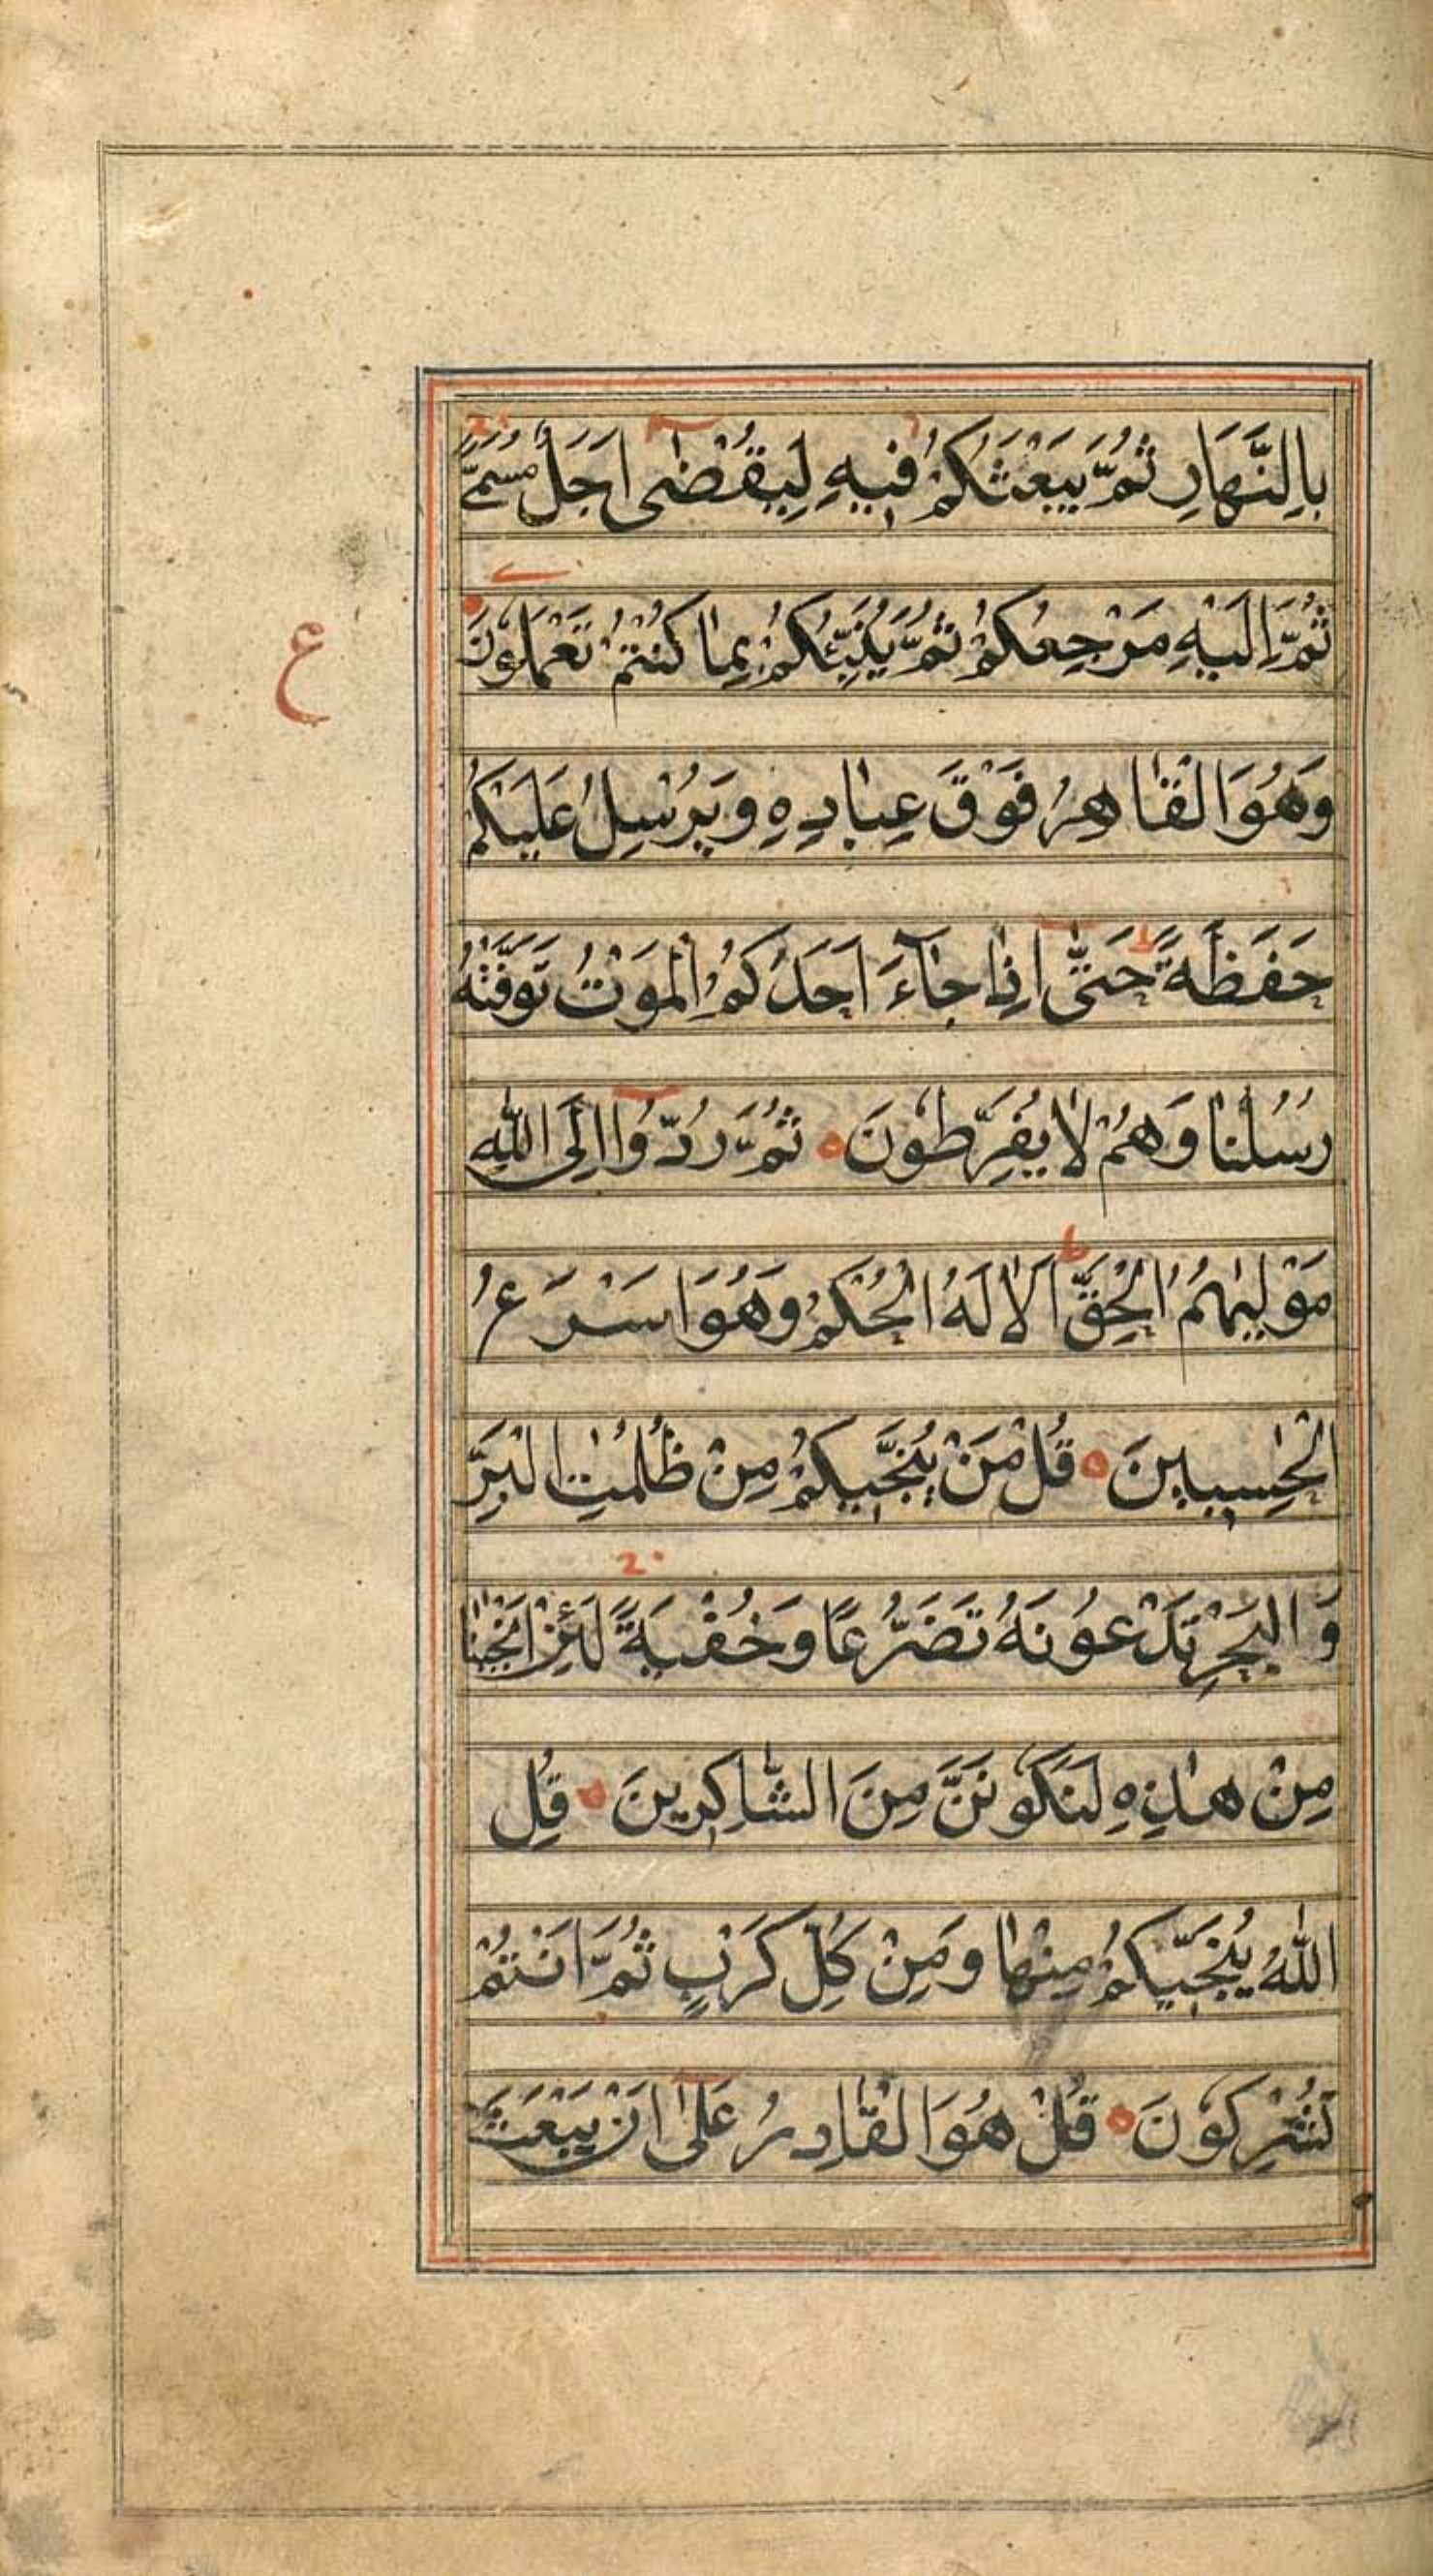 بِالنَّهَارِ ثُمَّ يَبْعَثُكُمْ فِيهِ لِيُقْضٰى اَجَلٌ مُسَمًّى
ثُمَّ اِلَيْهِ مَرْجِعُكُمْ ثُمَّ يُنَبِّئُكُمْ بِمَا كُنْتُمْ تَعْمَلُونَ
ع
وَهُوَ الْقَاهِرُ فَوْقَ عِبَادِهِ وَيُرْسِلُ عَلَيْكُمْ
حَفَظَةً حَتّٰى اِذَا جَآءَ اَحَدَكُمُ الْمَوْتُ تَوَفَّتْهُ
رُسُلُنَا وَهُمْ لَا يُفَرِّطُونَ ثُمَّ رُدُّوا اِلَى اللّٰهِ
مَوْلٰيهُمُ الْحَقِّ اَلَا لَهُ الْحُكْمُ وَهُوَ اَسْرَعُ
الْحٰسِبِينَ قُلْ مَنْ يُنَجِّيكُمْ مِنْ ظُلُمٰتِ الْبَرِّ
وَ الْبَحْرِ تَدْعُونَهُ تَضَرُّعًا وَخُفْيَةً لَئِنْ اَنْجٰنَا
مِنْ هٰذِهِ لَنَكُونَنَّ مِنَ الشَّاكِرِينَ قُلِ
اللّٰهُ يُنَجِّيكُمْ مِنْهَا وَمِنْ كُلِّ كَرْبٍ ثُمَّ اَنْتُمْ
تُشْرِكُونَ قُلْ هُوَ الْقَادِرُ عَلٰى اَنْ يَبْعَثَ